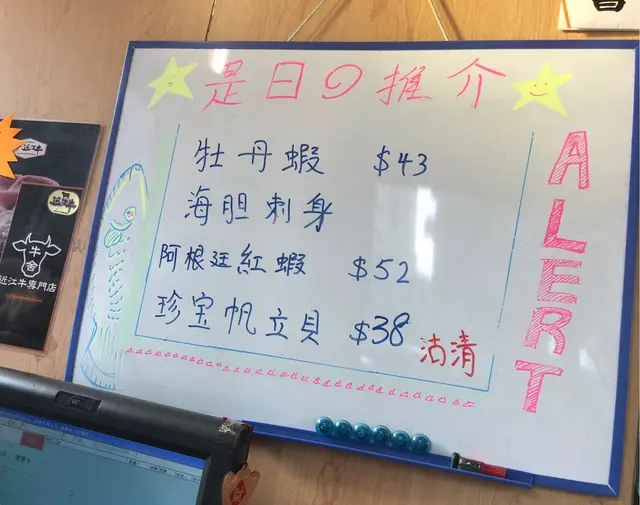 是日の推介
牡丹蝦 $43
海胆刺身
阿根廷紅蝦 $52
珍宝帆立貝 $38 沽清
ALERT
近江牛
牛舍
近江牛専門店